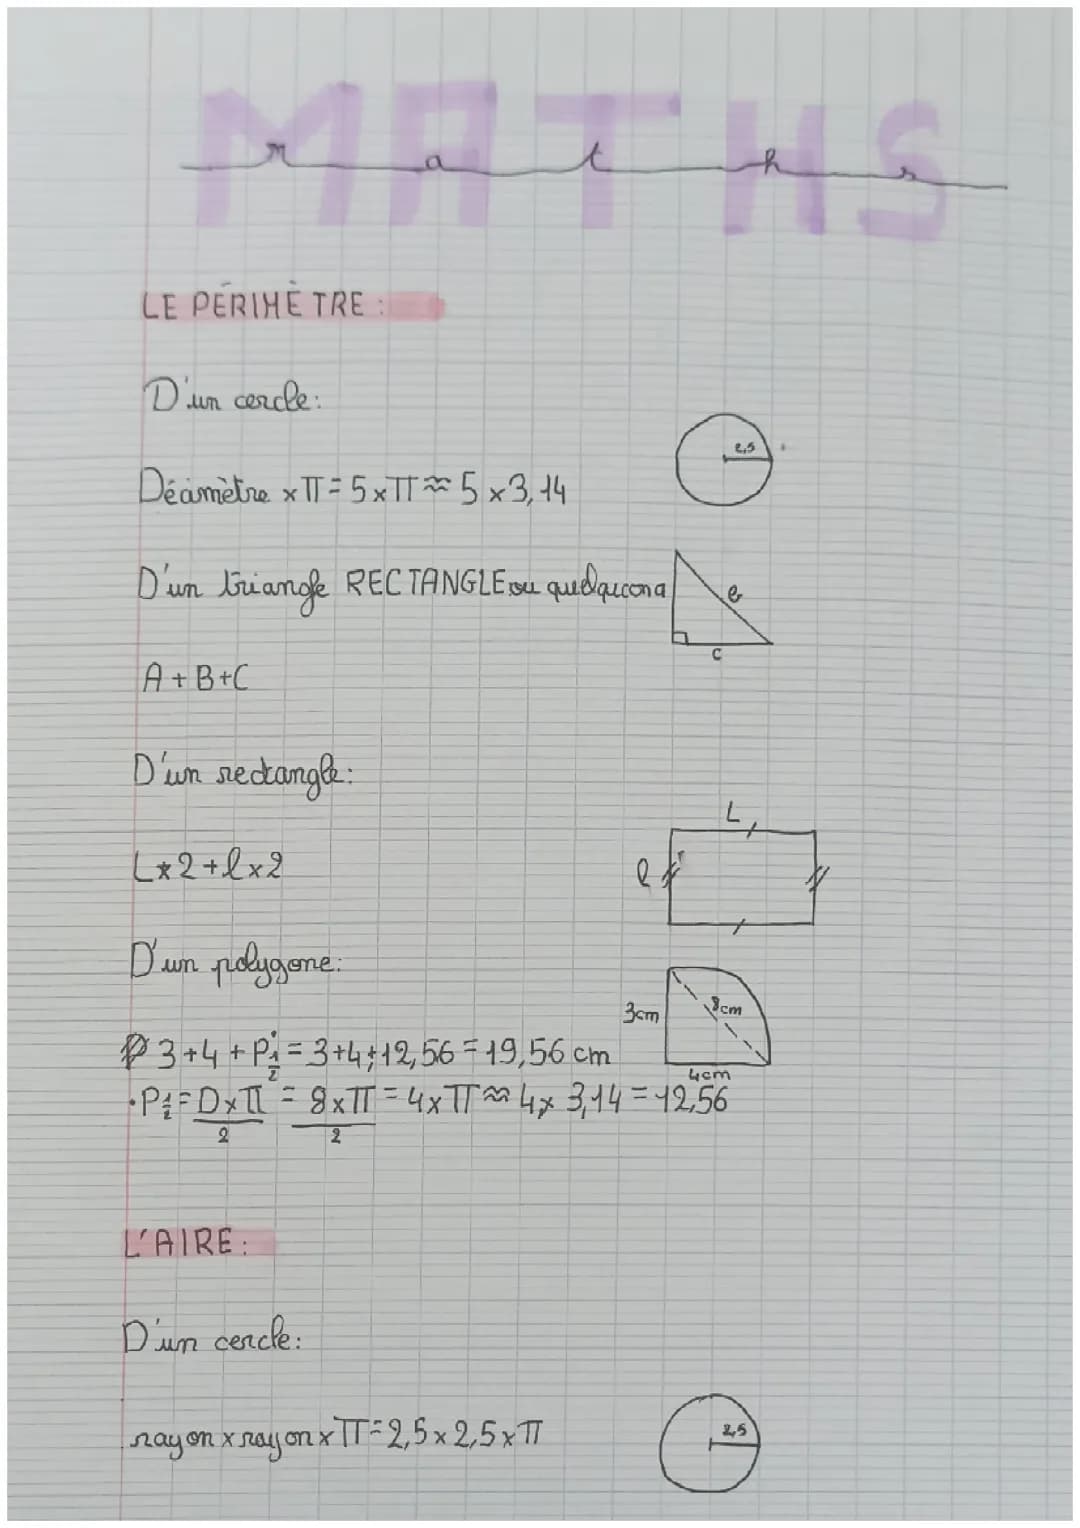 MATHS
maths
LE PÉRIMÈTRE :
D'un cercle:
2,5
Déamètre x π = 5 x π ≈ 5 x 3,14
D'un triangle RECTANGLE ou quelqucona
B
C
A + B + C
D'un rectangle:
L
L x 2 + l x 2
l
D'un polygone:
3cm
8cm
3 + 4 + P½ = 3 + 4 + 12,56 = 19,56 cm
4cm
• P½ = D x π / 2 = 8 x π / 2 = 4 x π ≈ 4 x 3,14 = 12,56
L'AIRE :
D'un cercle:
rayon x rayon x π = 2,5 x 2,5 x π
2,5